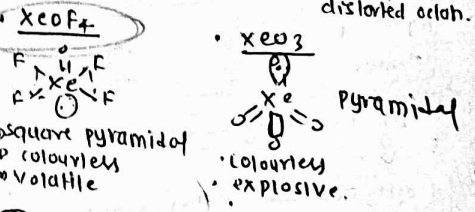 distorted octah.
XeOF4
O
F F
Xe
F F
square pyramidal
colourless
volatile
XeO3
Xe
O O
O
Pyramidal
colourless
explosive.